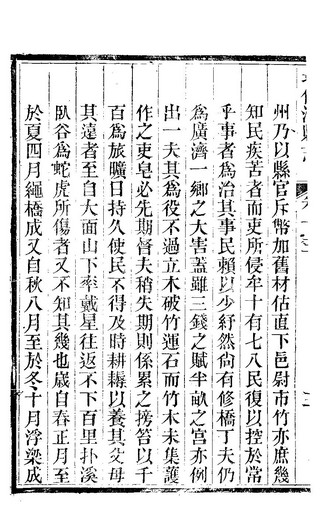 州乃以縣官斥幣加舊材估直下邑尉市竹亦庶幾
知民疾苦者而吏所侵牟十有七八民復以控於常
乎事者為治其事民賴以少紓然尚有修橋丁夫仍
為廣濟一鄉之大害蓋雖三錢之賦半畝之宮亦例
出一夫其為役不過立木破竹運石而竹木未集護
作之吏皂必先期督夫稍失期則係累之搒笞以千
百為旅曠日持久使民不得及時耕耨以養其父母
其遠者至自大面山下率戴星往返不下百里扑溪
臥谷為蛇虎所傷者又不知其幾也歲自春正月至
於夏四月繩橋成又自秋八月至於冬十月浮梁成